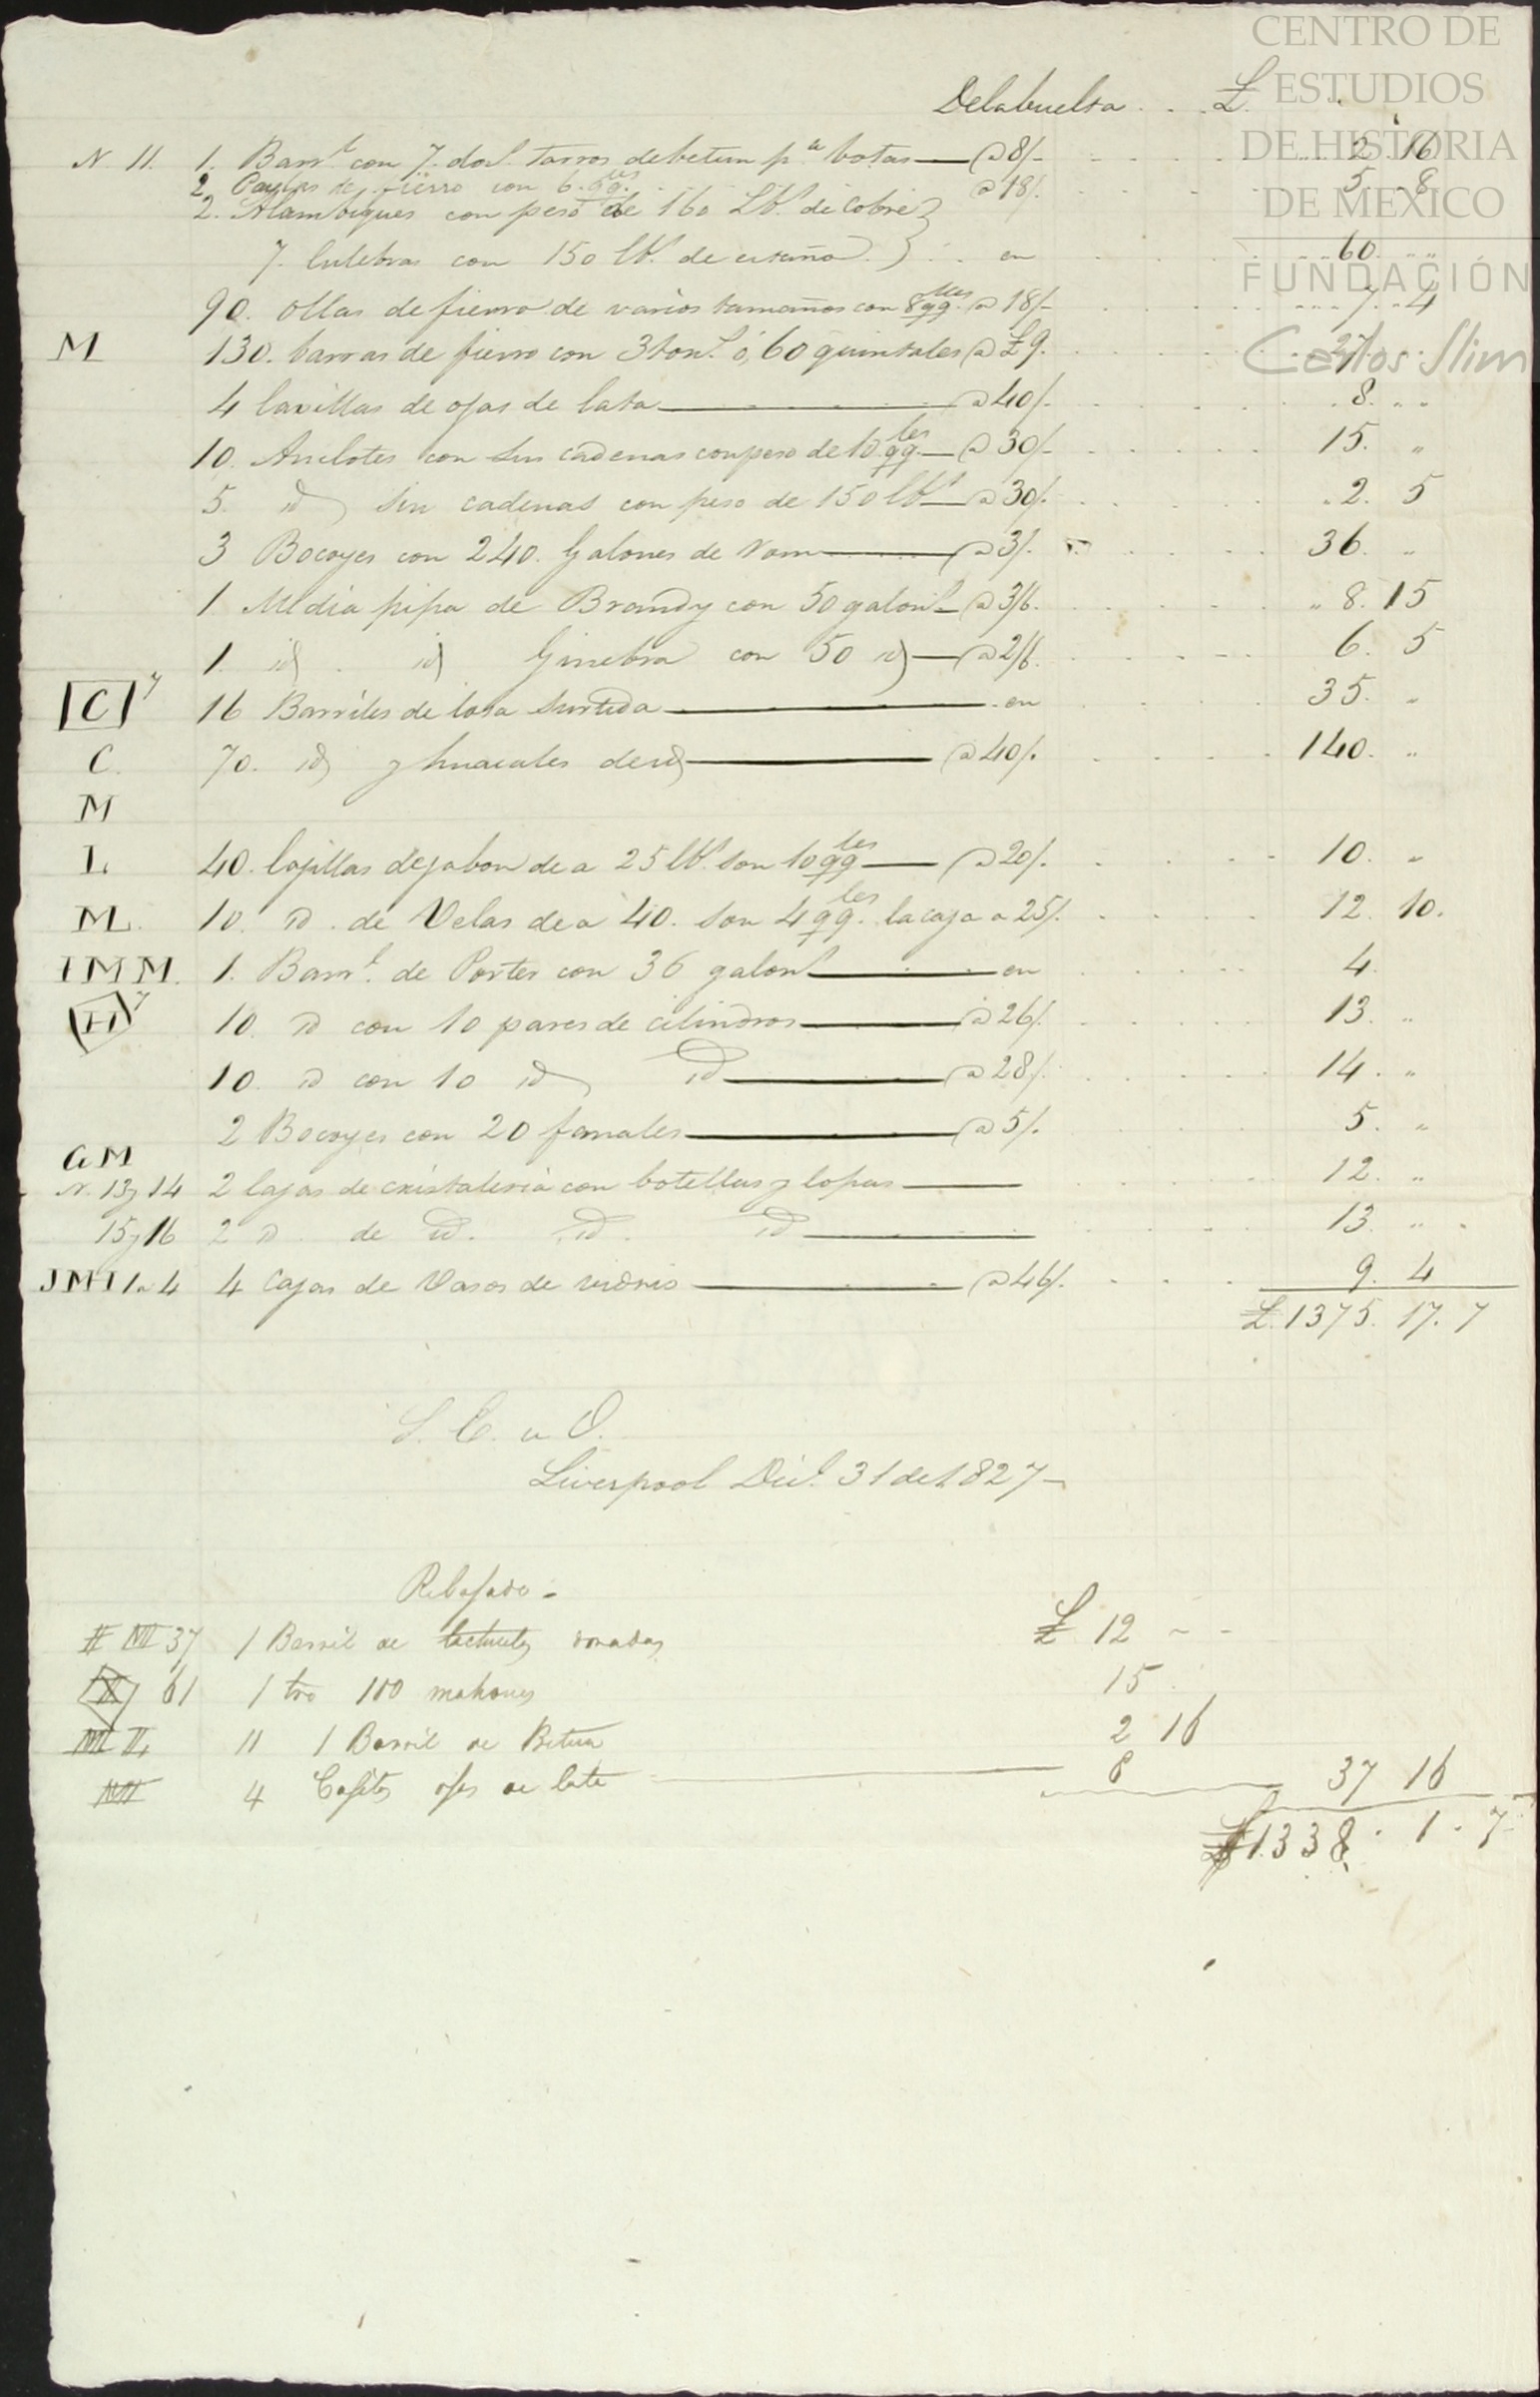 CENTRO DE
ESTUDIOS
DE HISTORIA
DE MEXICO
FUNDACIÓN
Carlos Slim
Delabuelta . . . £.
N. 11. 1. Barrl. con 7. docs. tarros debetun pa. botas — a 8/- 2. 16
2. Paylas de fierro con 6. qqles. a 18/. 5. 8
2. Alambiques con peso de 160 Lbs. de Cobre }
7. Culebras con 150 lbs. de estaño. } en 60. „ „
90. Ollas de fierro de varios tamaños con 8 qqles. a 18/- 7. 4
M 130. barras de fierro con 3 tons. ó, 60 quintales a £9. 27
4 Caxillas de ojas de lata — a 40/. 8. „ „
10. Anclotes con sus cadenas con peso de 10. qqles. — a 30/- 15. „
5. id sin cadenas con peso de 150 lbs — a 30/. 2. 5
3 Bocoyes con 240. Galones de Rom — a 3/. 36. „
1 Media pipa de Brandy con 50 galons — a 3/6. „ 8. 15
1. id . id Ginebra con 50 id — a 2/6. 6. 5
C 16 Barriles de losa surtida — en 35. „
C. 70. id y huacales de id — a 40/. 140. „
M
L 40. Cajillas dejabon de a 25 lbs. son 10 qqles — a 20/. 10. „
M. 10. id . de Velas de a 40. son 4 qqles. la caja a 25/. 12. 10.
I M M. 1. Barrl. de Porter con 36 galons — en 4.
H 10. id con 10 pares de cilindros — a 26/. 13. „
10. id con 10 id id — a 28/. 14. „
2 Bocoyes con 20 fanales — a 5/. 5. „
G M
N. 13 y 14 2 Cajas de cristaleria con botellas y Copas — 12. „
15 y 16 2 id . de id. id. id — 13. „
J M 1 1 a 4 4 Cajas de Vasos de vidrio — a 46/. 9. 4
£. 1375. 17. 7
S. E. u O.
Liverpool Dice. 31 de 1827-
Rebajado -
37 1 Barril de doradas £ 12 - -
61 1 tro 100 mahones 15.
11 1 Barril de Betun 2 16
4 Cajitas ojas de lata — 8 37 16
£1338. 1. 7